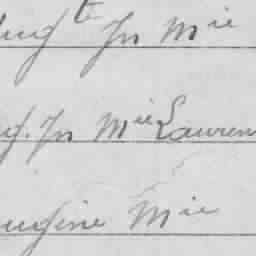 Aug te Jn Mie
g. Jn Mie Lauren
Eugéne Mie